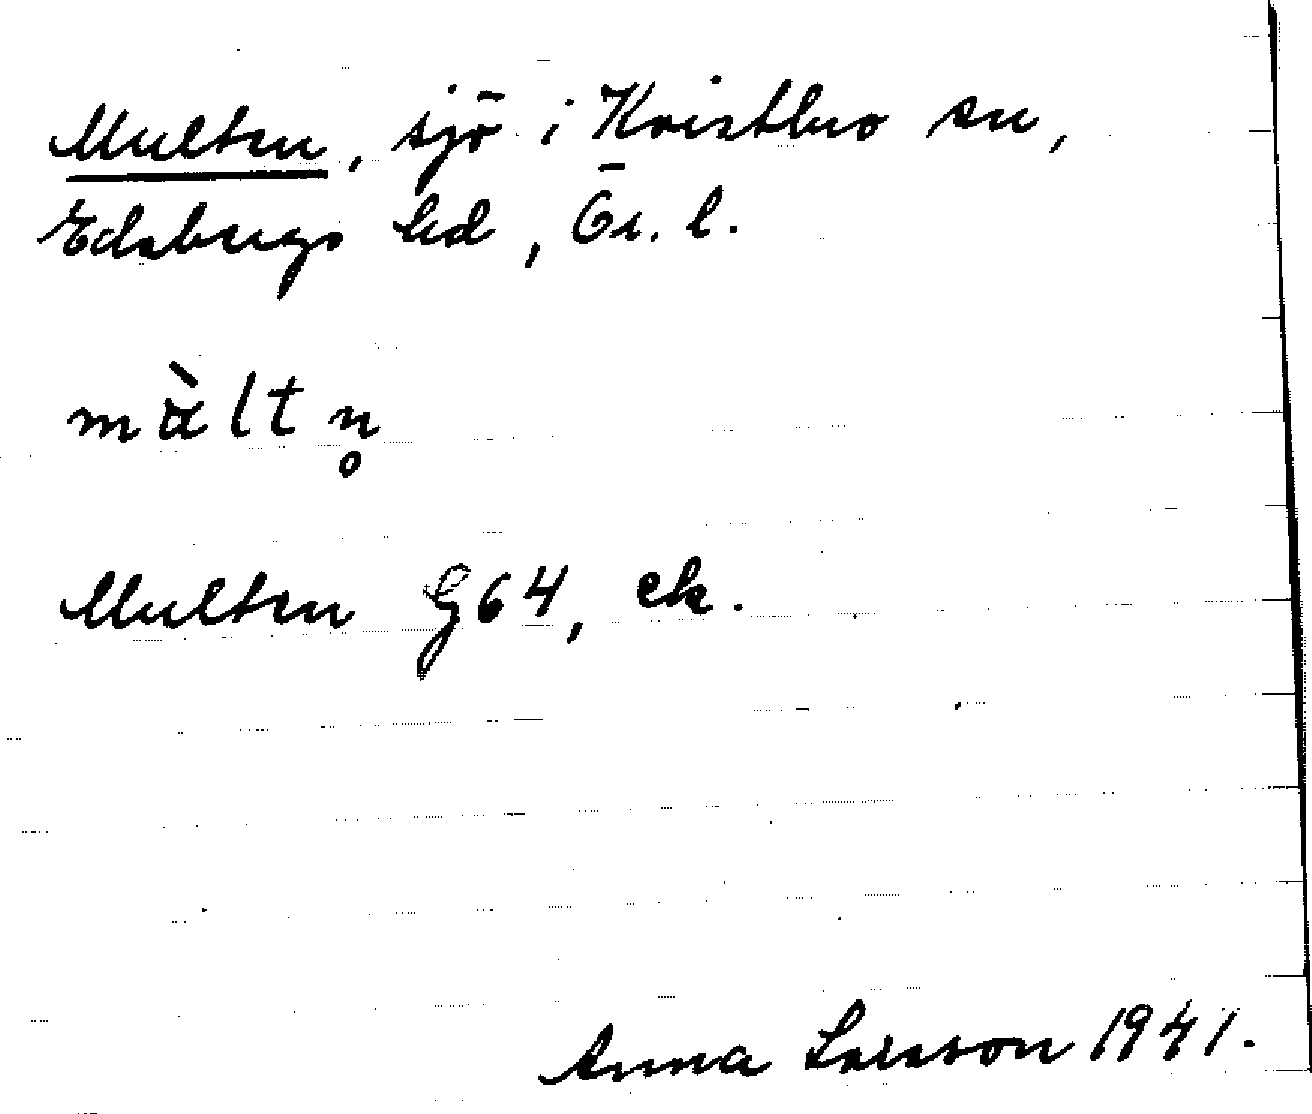 Multen, sjö i Kvistbro sn,
Edsbergs hd, Ör. l.
màltn̥
Multen G64, ek.
Anna Larsson 1941.